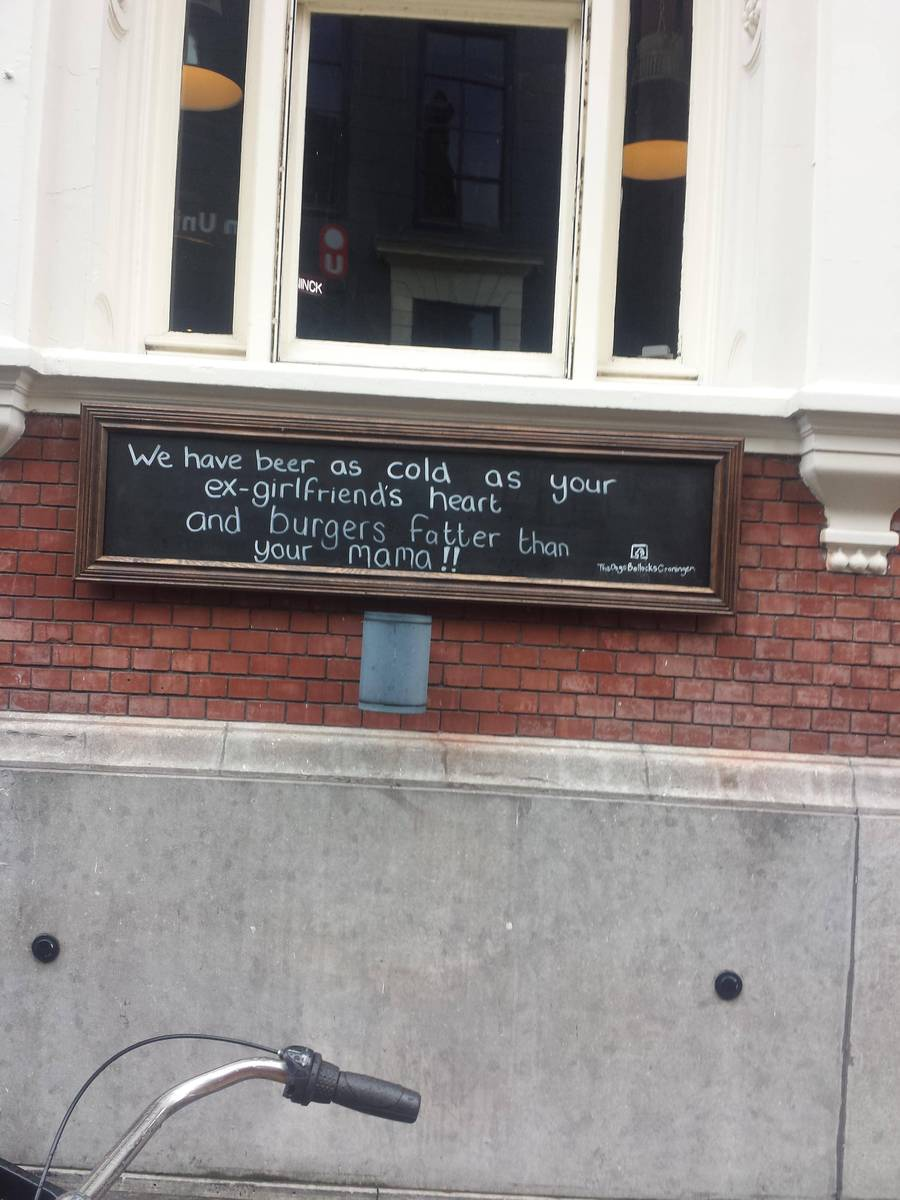 UNCK
We have beer as cold as your
ex-girlfriend's heart
and burgers fatter than
your mama!!
TheDogsBollocksGroningen